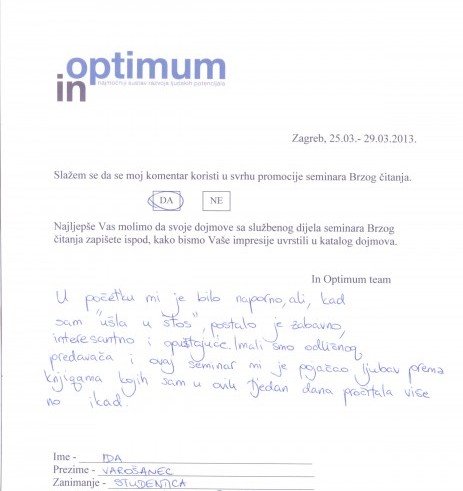 optimum
in
najmoćniji sustav razvoja ljudskih potencijala
Zagreb, 25.03.- 29.03.2013.
Slažem se da se moj komentar koristi u svrhu promocije seminara Brzog čitanja.
DA NE
Najljepše Vas molimo da svoje dojmove sa službenog dijela seminara Brzog
čitanja zapišete ispod, kako bismo Vaše impresije uvrstili u katalog dojmova.
In Optimum team
U početku mi je bilo naporno, ali, kad
sam "ušla u štos", postalo je zabavno,
interesantno i opuštajuće. Imali smo odličnog
predavača i ovaj seminar mi je pojačao ljubav prema
knjigama kojih sam u ovih tjedan dana pročitala više
no ikad.
Ime - IDA
Prezime - VAROŠANEC
Zanimanje - STUDENTICA